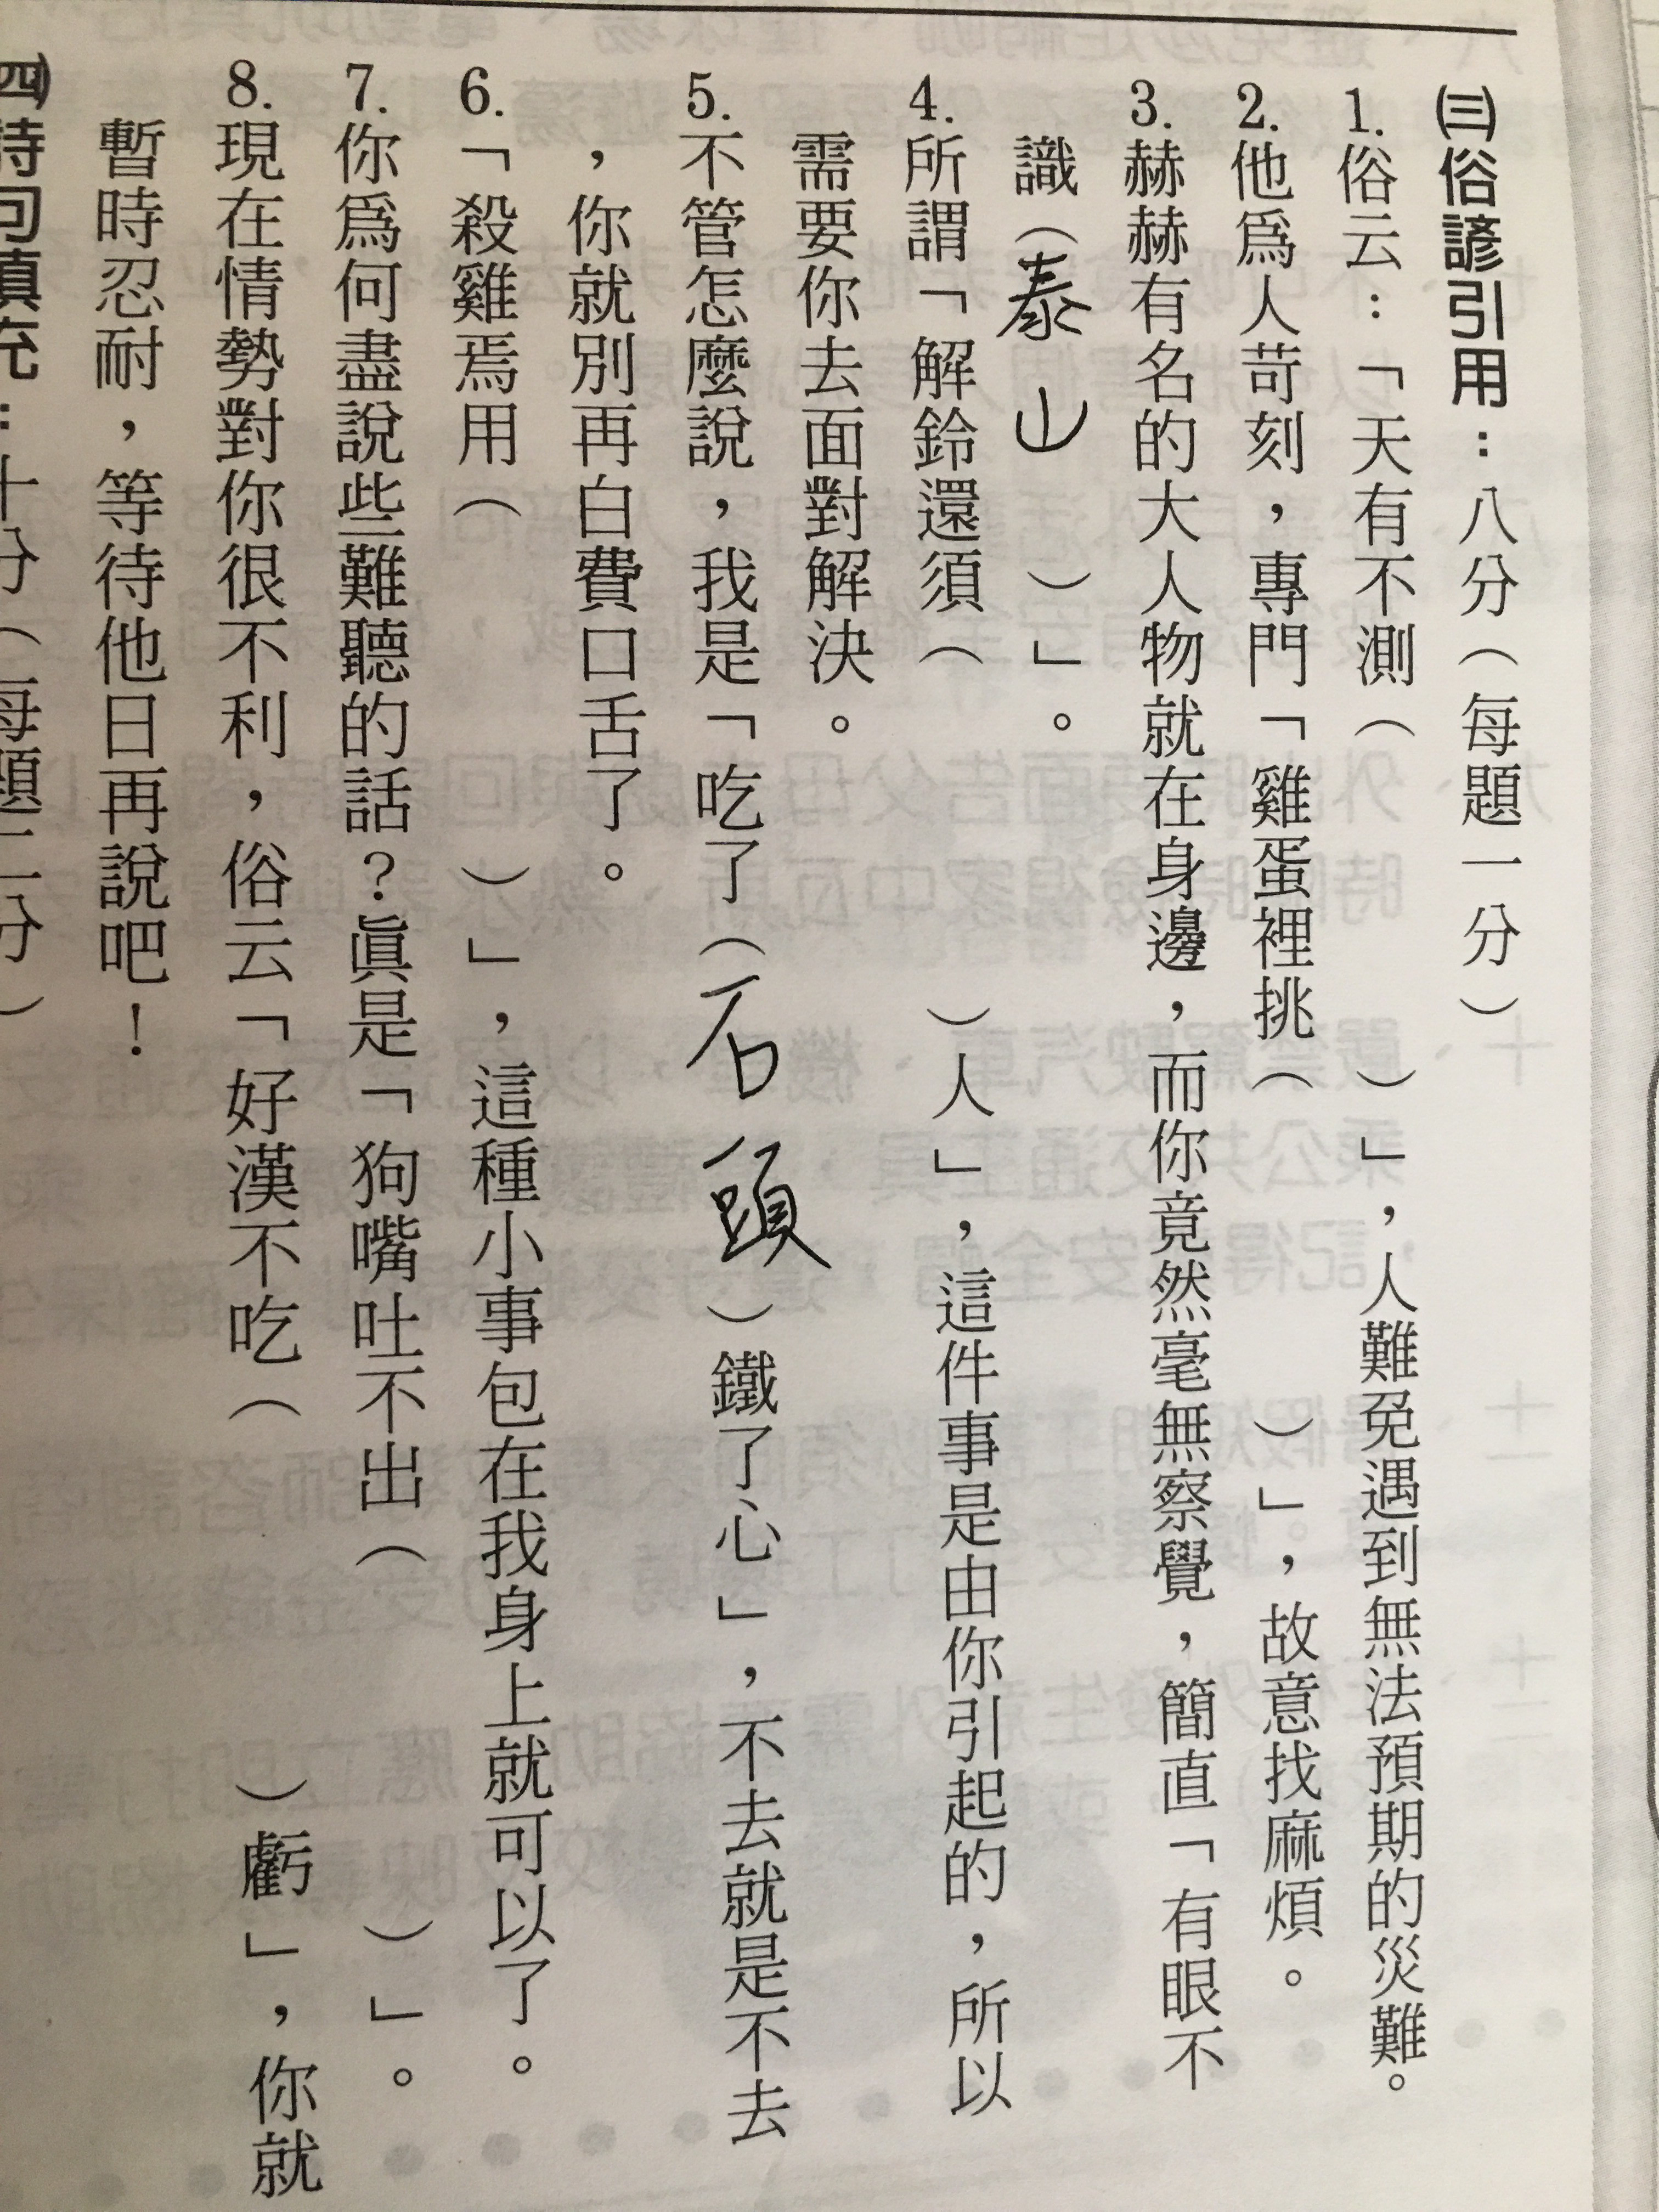 ㈢俗諺引用：八分（每題一分）
1.俗云：「天有不測（　　　）」，人難免遇到無法預期的災難。
2.他爲人苛刻，專門「雞蛋裡挑（　　　）」，故意找麻煩。
3.赫赫有名的大人物就在身邊，而你竟然毫無察覺，簡直「有眼不
識（泰山　）」。
4.所謂「解鈴還須（　　　）人」，這件事是由你引起的，所以
需要你去面對解決。
5.不管怎麼說，我是「吃了（石頭）鐵了心」，不去就是不去
，你就別再白費口舌了。
6.「殺雞焉用（　　　）」，這種小事包在我身上就可以了。
7.你爲何盡說些難聽的話？眞是「狗嘴吐不出（　　　）」。
8.現在情勢對你很不利，俗云「好漢不吃（　　　）虧」，你就
暫時忍耐，等待他日再說吧！
㈣詩句填充：十分（每題二分）